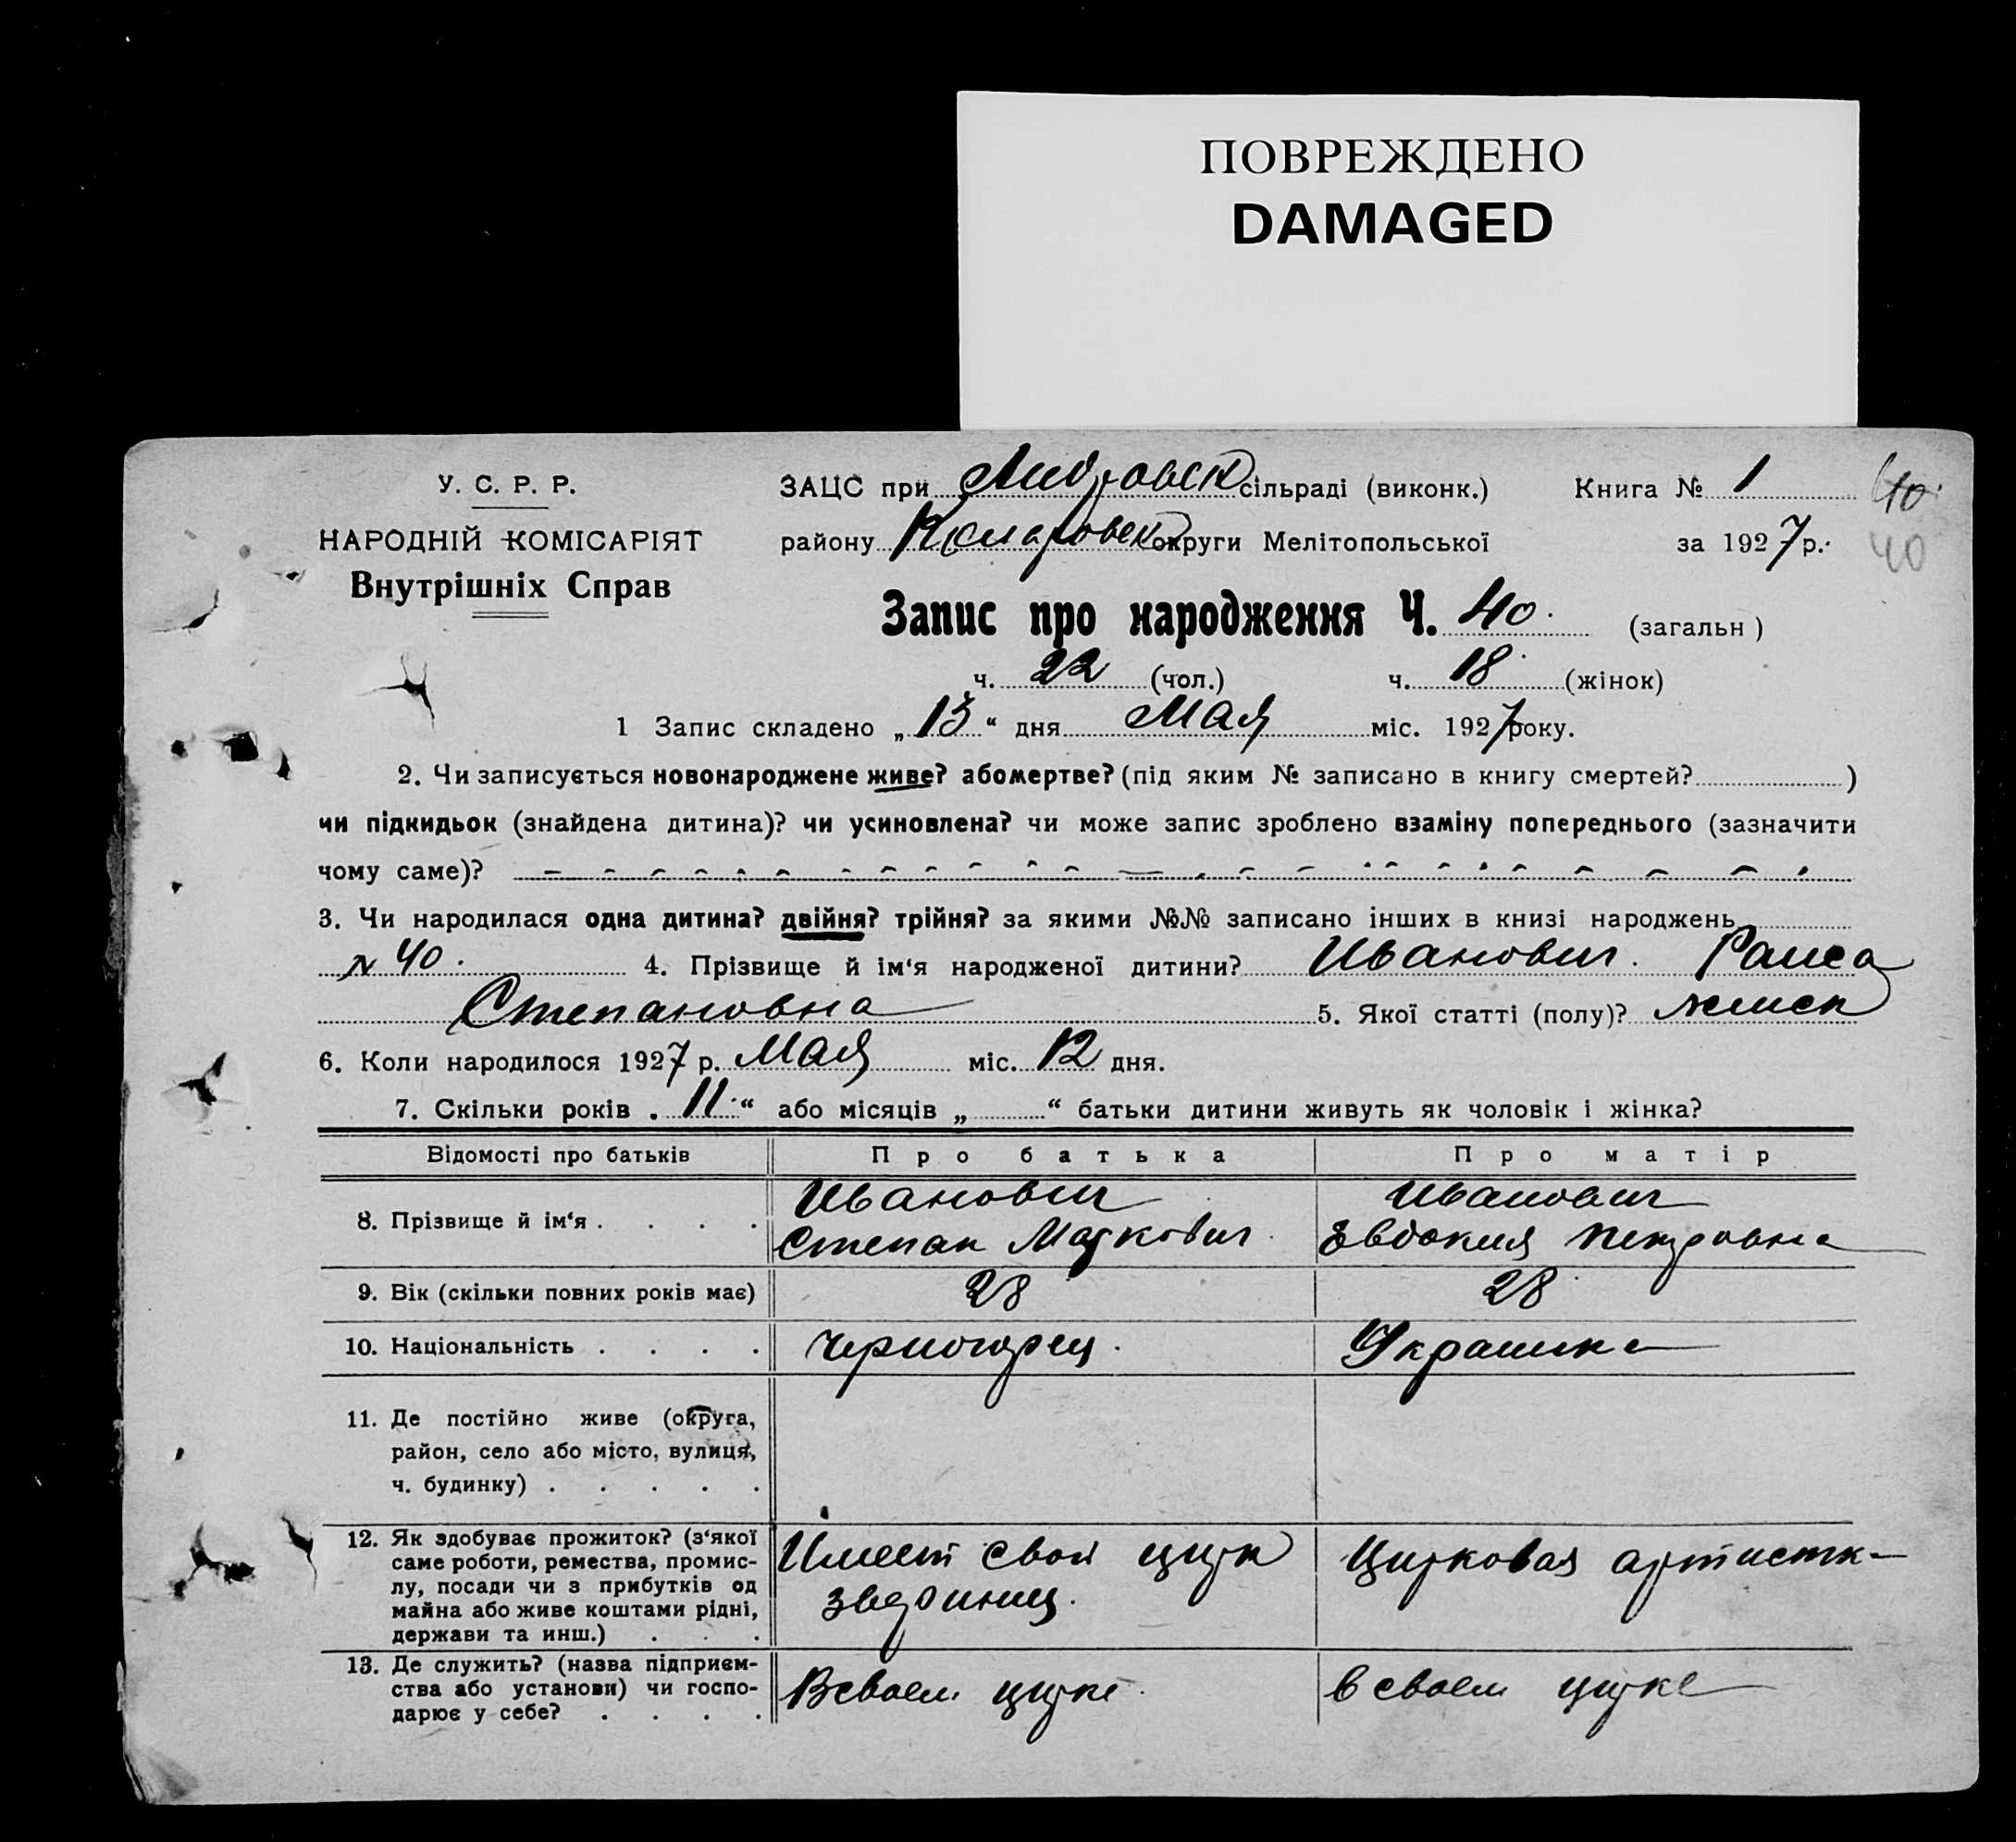 ПОВРЕЖДЕНО
DAMAGED
У. С. Р. Р.
НАРОДНІЙ КОМІСАРІЯТ
Внутрішніх Справ
ЗАЦС при сільраді (виконк.) Книга № 1 40
району округи Мелітопольської за 1927 р. 40
Запис про народження Ч. 40. (загальн )
ч. 22 (чол.) ч. 18 (жінок)
1 Запис складено „13“ дня Мая міс. 1927 року.
2. Чи записується новонароджене живе? або мертве? (під яким № записано в книгу смертей? )
чи підкидьок (знайдена дитина)? чи усиновлена? чи може запис зроблено взаміну попереднього (зазначити
чому саме)?
3. Чи народилася одна дитина? двійня? трійня? за якими №№ записано інших в книзі народжень
N 40. 4. Прізвище й ім‘я народженої дитини? Иванович. Раиса
Степановна 5. Якої статті (полу)? женск
6. Коли народилося 1927 р. Мая міс. 12 дня.
7. Скільки років „11“ або місяців „ “ батьки дитини живуть як чоловік і жінка?
Відомості про батьків Про батька Про матір
8. Прізвище й ім‘я . . . . Иванович Степан Маркович. Иванович Евдокия Петровна
9. Вік (скільки повних років має) 28 28
10. Національність . . . . Черногорец. Украинка
11. Де постійно живе (округа,
район, село або місто, вулиця,
ч. будинку) . . . . .
12. Як здобуває прожиток? (з‘якої
саме роботи, ремества, промис-
лу, посади чи з прибутків од
майна або живе коштами рідні,
держави та инш.) . . .
Имеет свой цирк
зверинец.
Цирковая артистка
13. Де служить? (назва підприєм-
ства або установи) чи госпо-
дарює у себе? . . . .
В своем цирке.
в своем цирке